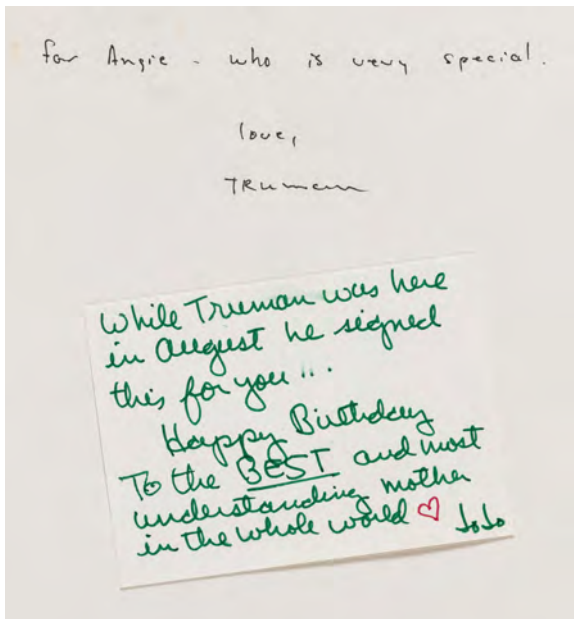 for Angie - who is very special.
love,
Truman
While Truman was here
in August he signed
this for you...
Happy Birthday
To the BEST and most
understanding mother
in the whole world ♡ JoJo